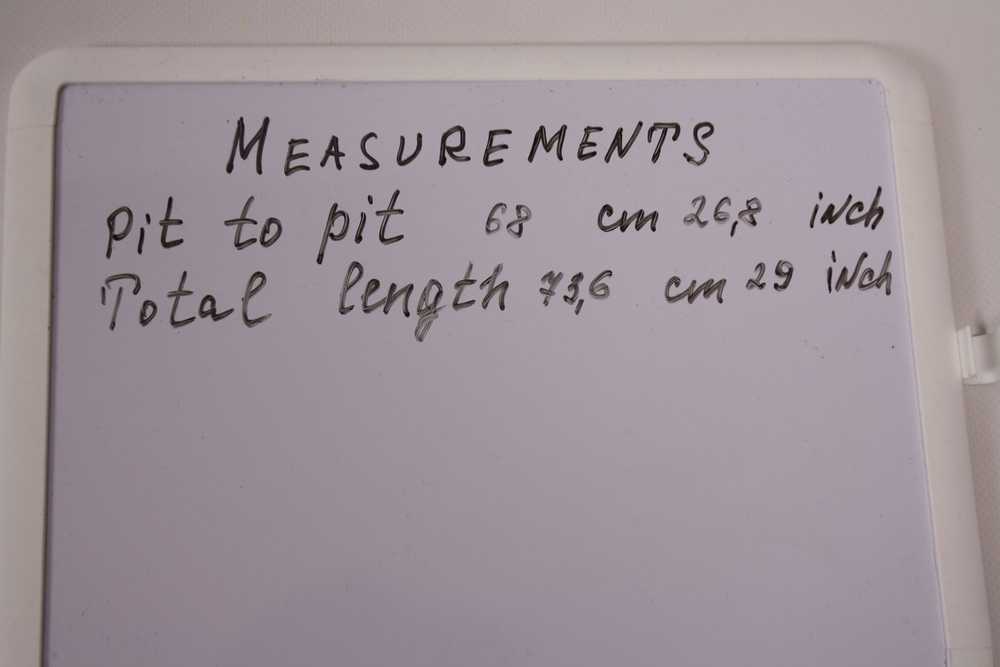 MEASUREMENTS
Pit to pit 68 cm 26,8 inch
Total length 73,6 cm 29 inch